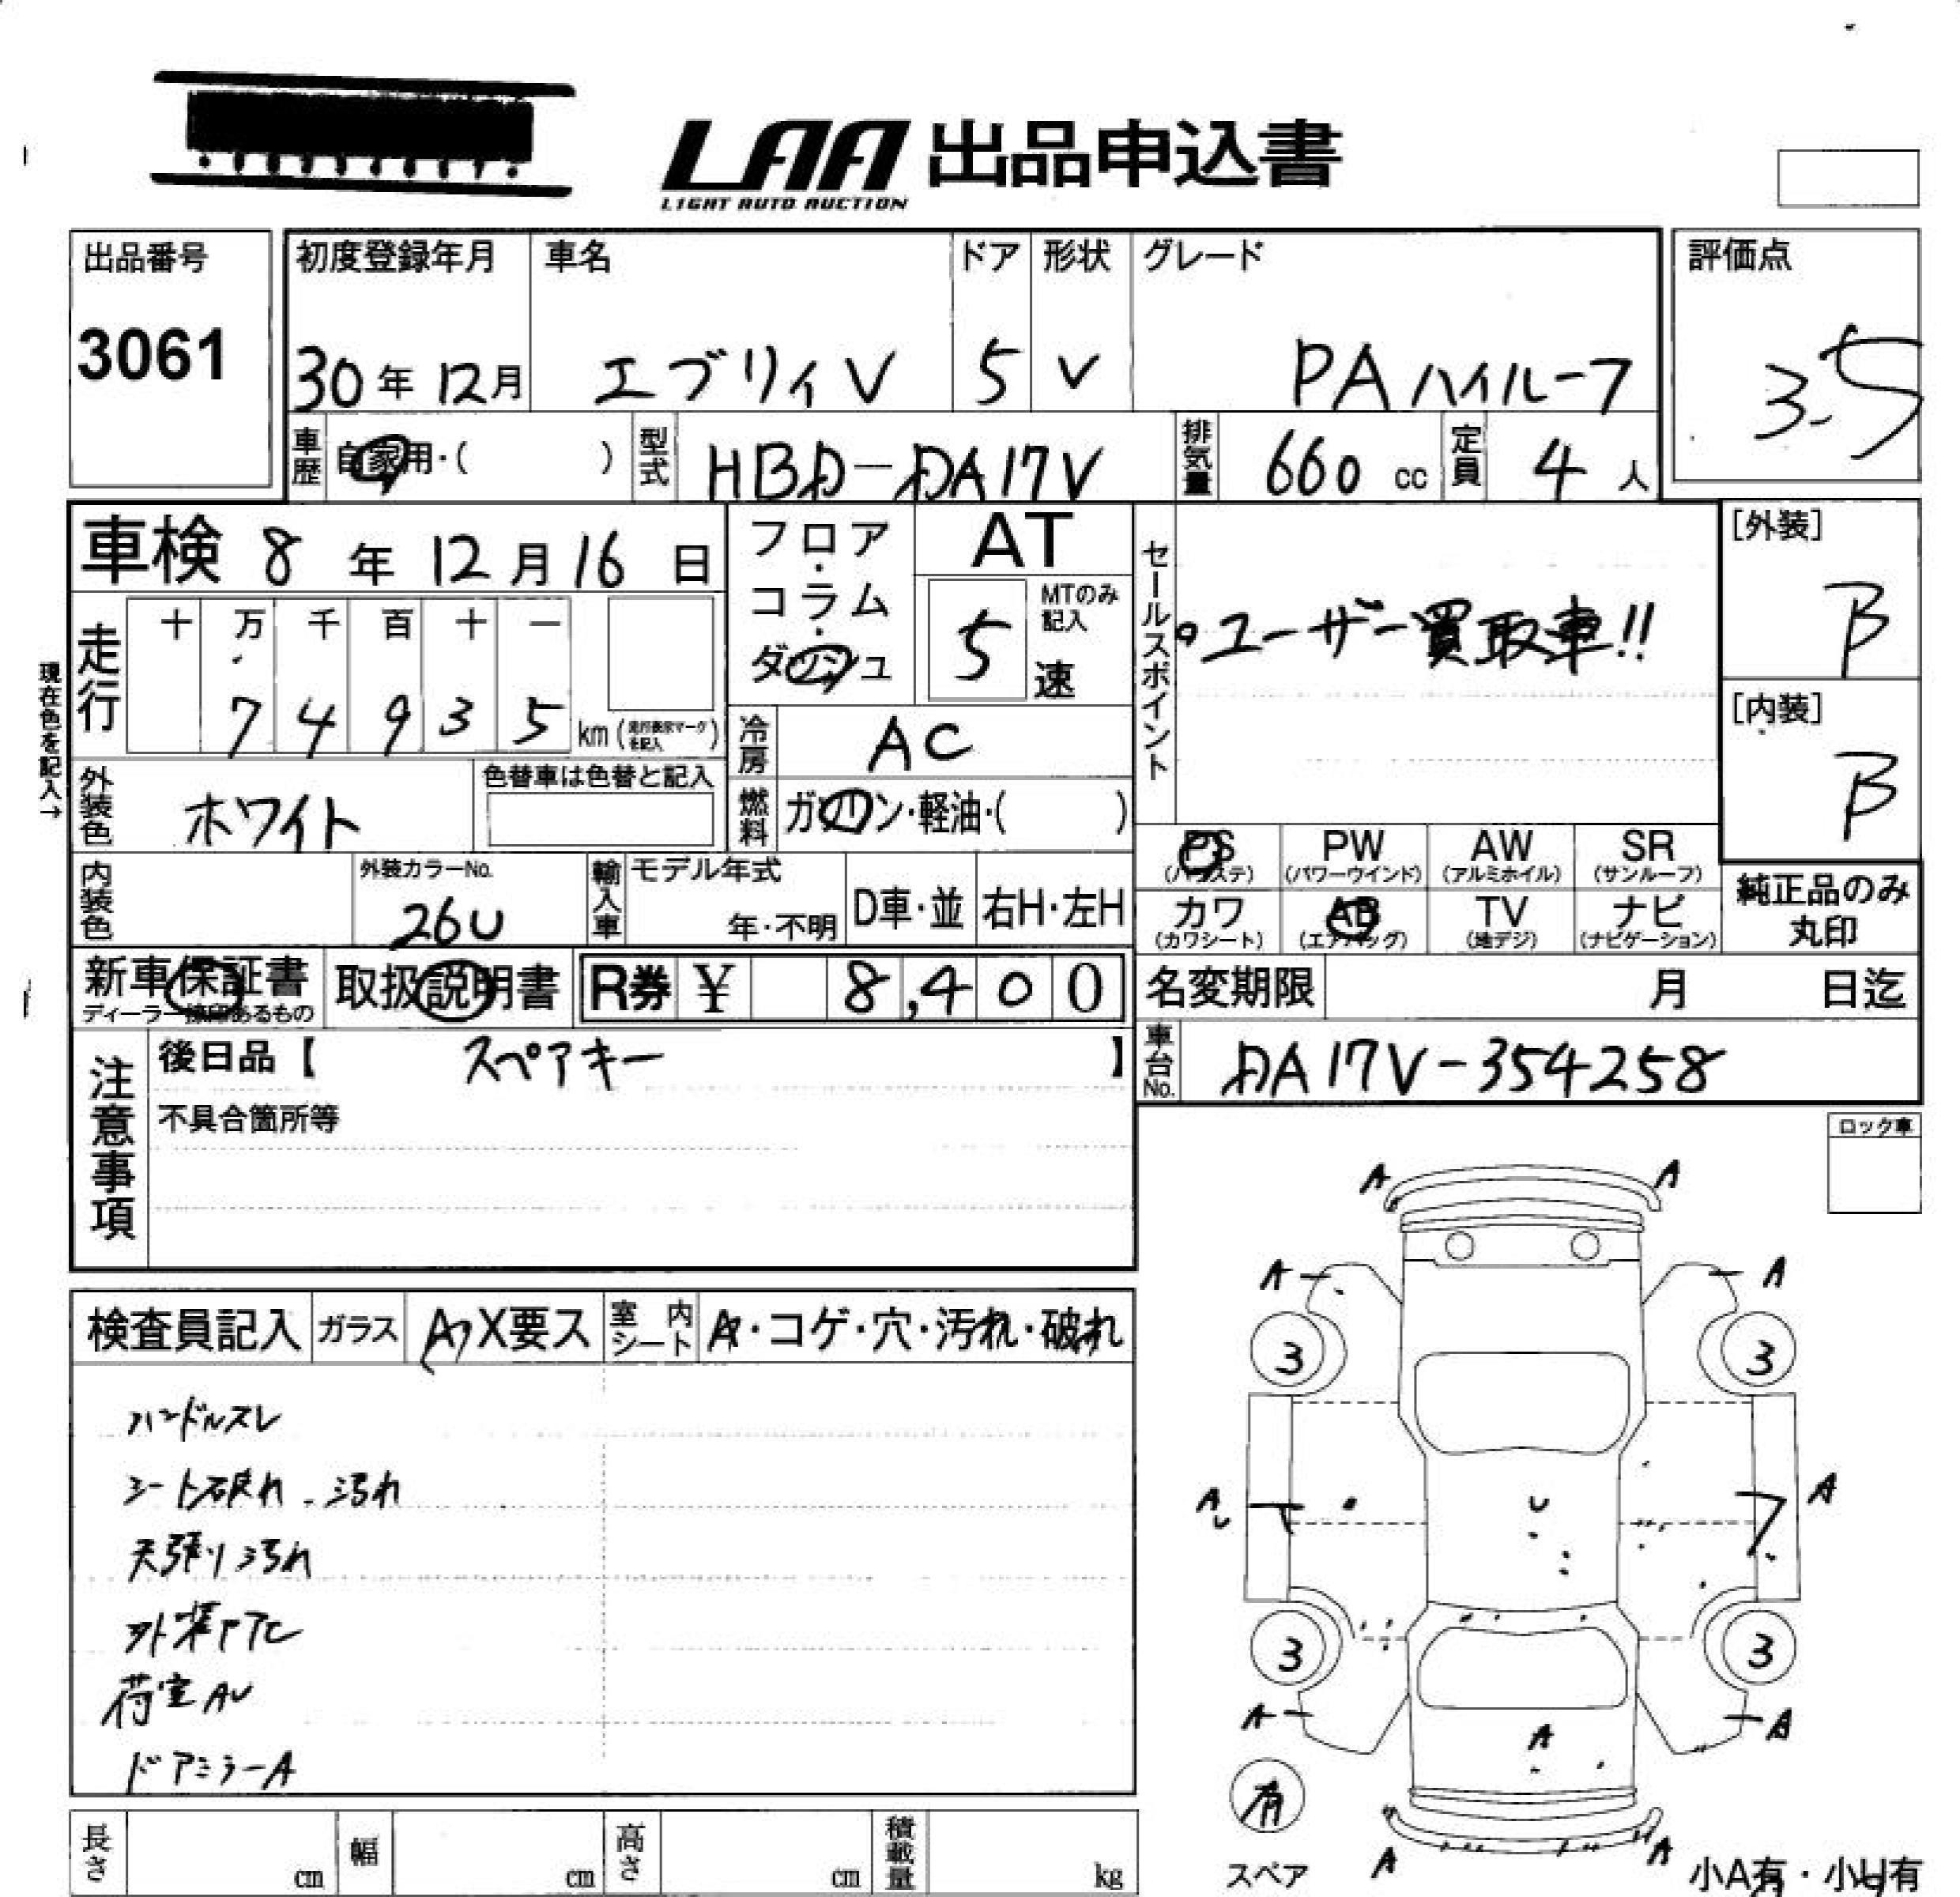 LAA 出品申込書
LIGHT AUTO AUCTION
出品番号
3061
初度登録年月
30年12月
車名
エブリイV
ドア
5
形状
V
グレード
PAハイルーフ
評価点
3.5
車歴
自家用・( )
型式
HBD-DA17V
排気量
660 cc
定員
4 人
車検 8 年 12 月 16 日
フロア・コラム・ダッシュ
AT
5 速
MTのみ記入
セールスポイント
ユーザー買取車!!
[外装]
B
現在色を記入→
走行
十 万 千 百 十 一
7 4 9 3 5 km(走行表示マークを記入)
[内装]
B
冷房
AC
外装色
ホワイト
色替車は色替と記入
燃料
ガソリン・軽油・( )
PS
(パワステ)
PW
(パワーウインド)
AW
(アルミホイル)
SR
(サンルーフ)
内装色
外装カラーNo.
26U
輸入車
モデル年式
年・不明
D車・並
右H・左H
カワ
(カワシート)
AB
(エアバッグ)
TV
(地デジ)
ナビ
(ナビゲーション)
純正品のみ
丸印
新車保証書
ディーラー捺印あるもの
取扱説明書
R券 ¥ 8,400
名変期限 月 日迄
車台No.
DA17V-354258
注意事項
後日品【 スペアキー 】
不具合箇所等
ロック車
検査員記入
ガラス
A X要ス
室内シート
A・コゲ・穴・汚れ・破れ
ハンドルスレ
シート破れ、汚れ
天張り汚れ
荷室AU
ドアミラーA
A A
A A
3 3
A U A
U
3 3
A A
A
有
スペア
A A
小A有・小U有
長さ cm
幅 cm
高さ cm
積載量 kg